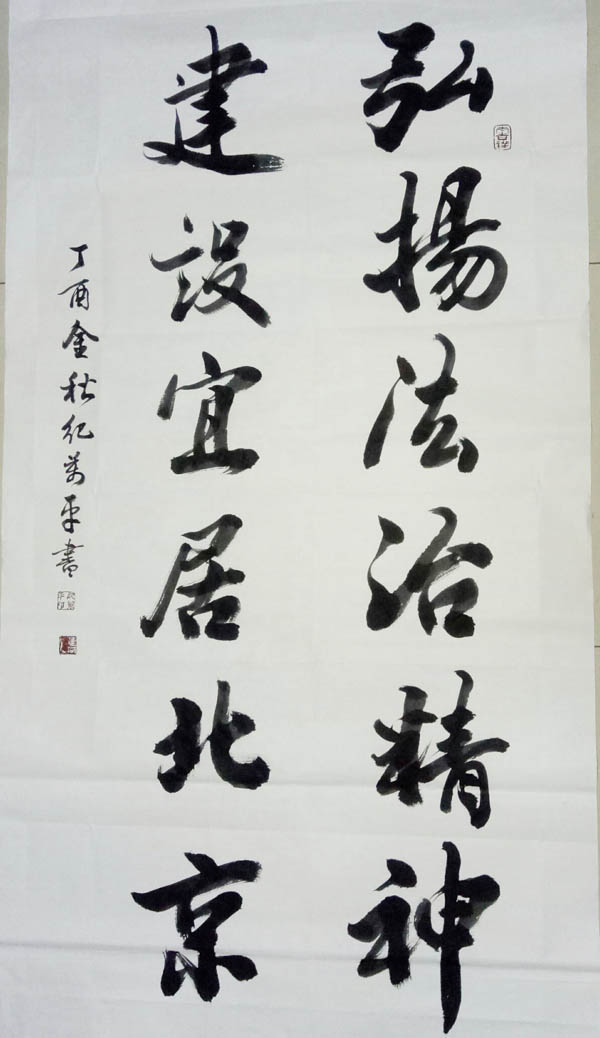 弘揚法治精神
建設宜居北京
丁酉金秋纪萬平書